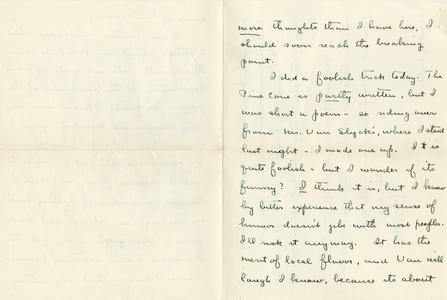 more thoughts than I have here, I
should soon reach the breaking
point.
I did a foolish trick today. The
Pine Cone is partly written, but I
was short a poem - so riding over
from Mr. Van Slyck's, where I stayed
last night - I made one up. It is
quite foolish - but I wonder if its
funny? I think it is, but I know
by bitter experience that my sense of
humor doesn't jibe with most peoples.
I'll risk it anyway. It has the
merit of local flavor, and Van will
laugh I know, because its about